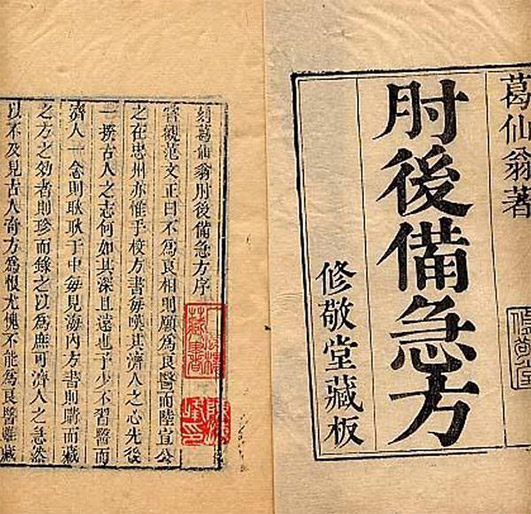 葛仙翁著
肘後備急方
修敬堂藏板
刻葛仙翁肘後備急方序
嘗觀范文正曰不為良相則願為良醫而陸宣公
之在忠州亦惟手校方書每嘆其濟人之心先後
一揆古人之志何如其深且遠也予少不習醫而
濟人一念則耿耿于中每見海內方書則購而藏
之方之効者則珍而錄之以為庶可濟人之急然
以不及見古人奇方為恨尤愧不能為良醫雖藏